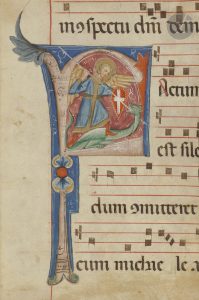 in ospectu dm̄ dem
Factum
est sile
dum committeret
cum michae le a